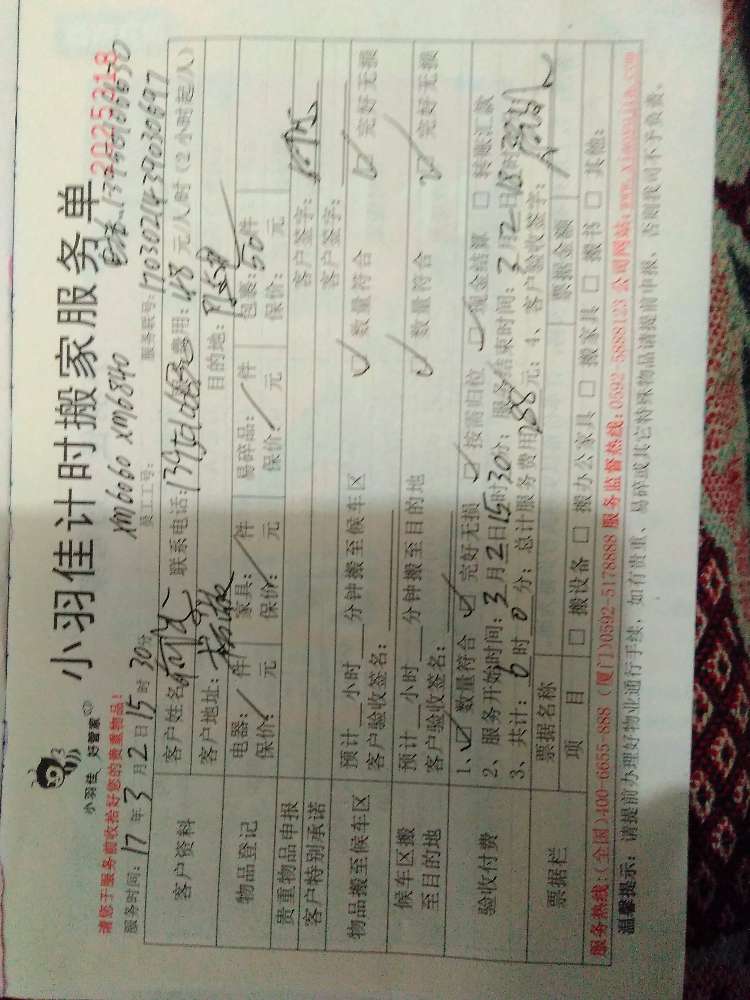 小羽佳 好管家
小羽佳计时搬家服务单
2025218
请您于服务前收拾好您的贵重物品!
员工工号: xm6060 xm6840
服务时间: 17年3月2日15时30分
服务联号: 1703021439030697
客户资料
客户姓名 联系电话: 服务费用: 48 元/人/时(2小时起/人)
客户地址: 目的地:
物品登记
电器: / 件 家具: / 件 易碎品: / 件 包裹: 50 件
保价: / 元 保价: / 元 保价: / 元 保价: 元
贵重物品申报
客户特别承诺
客户签字:
物品搬至候车区
预计 小时 分钟搬至候车区 ☑ 数量符合 ☑ 完好无损
客户验收签名: 客户签字:
候车区搬至目的地
预计 小时 分钟搬至目的地 ☑ 数量符合 ☑ 完好无损
客户验收签名:
验收付费
1、☑ 数量符合 ☑ 完好无损 ☑ 按需归位 ☑ 现金结算 □ 转账汇款
2、服务开始时间: 3月2日15时30分; 服务结束时间: 3月2日18时
3、共计: 6时0分; 总计服务费用 288 元; 4、客户验收签字:
票据栏
票据名称 票据金额
项 目 □ 搬设备 □ 搬办公家具 □ 搬家具 □ 搬书 □ 其他:
服务热线:(全国)400-6655-888 (厦门)0592-5178888 服务监督热线:0592-5888123 公司网站:www.xiaoyujia.com
温馨提示: 请提前办理好物业通行手续, 如有贵重、易碎或其它特殊物品请提前申报, 否则我司不予负责。